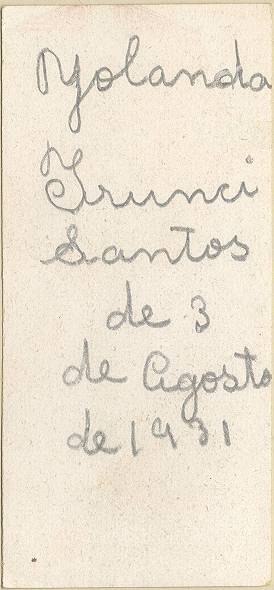 Yolanda
Trunci
Santos
de 3
de Agosto
de 1931